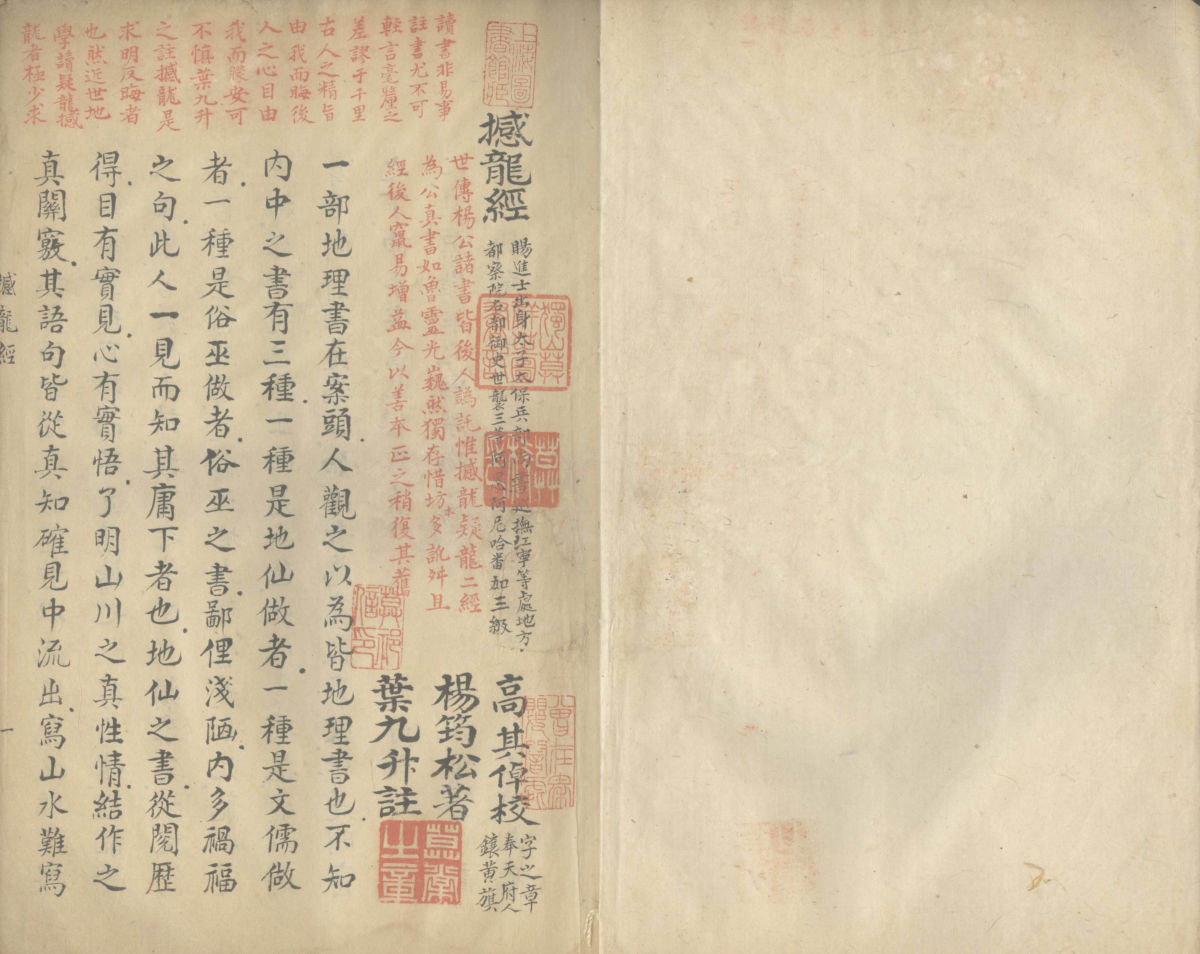 撼龍經
賜進士出身太子太保兵部尚書巡撫江寧等處地方
都察院右都御史世襲三等阿思阿尼哈番加三級
高其倬校
字之章
奉天府人
鑲黃旗
楊筠松著
葉九升註
世傳楊公諸書皆後人譌託惟撼龍疑龍二經
為公真書如魯靈光巍然獨存惜坊本多訛舛且
經後人竄易增益今以善本正之稍復其舊
讀書非易事
註書尤不可
輕言毫釐之
差謬于千里
古人之精旨
由我而晦後
人之心目由
我而朦安可
不慎葉九升
之註撼龍是
求明反晦者
也然近世地
學請疑龍撼
龍者極少求
一部地理書在案頭人觀之以為皆地理書也不知
內中之書有三種一種是地仙做者一種是文儒做
者一種是俗巫做者俗巫之書鄙俚淺陋內多禍福
之句此人一見而知其庸下者也地仙之書從閱歷
得目有實見心有實悟了明山川之真性情結作之
真關竅其語句皆從真知確見中流出寫山水難寫
撼龍經
一
上海圖書館藏